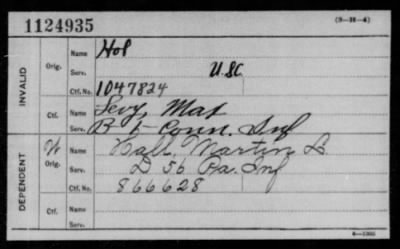 1124935
(3-38-4)
INVALID
Orig.
Name Hol
Serv. U.S.C.
Ctf. No. 1047824
Ctf.
Name Levy, Mat
Serv. B 6 Conn. Inf
DEPENDENT
W
Orig.
Name Hall, Martin S.
Serv. D 56 Pa. Inf
Ctf. No. 866628
Ctf.
Name
Serv.